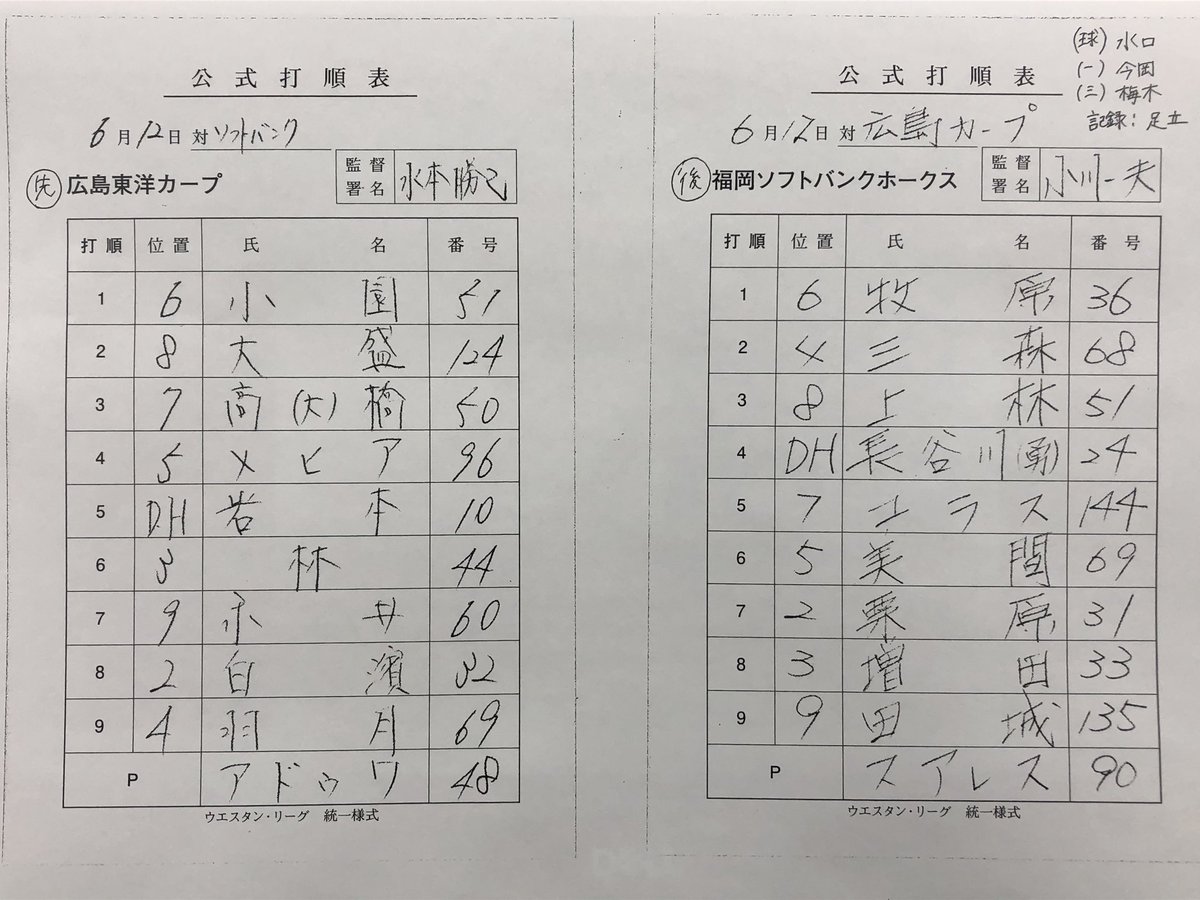 公式打順表
6月12日 対 ソフトバンク
先 広島東洋カープ 監督署名 水本勝己
打順 位置 氏名 番号
1 6 小園 51
2 8 大盛 124
3 7 高(大)橋 50
4 5 メヒア 96
5 DH 岩本 10
6 3 林 44
7 9 永井 60
8 2 白濱 32
9 4 羽月 69
P アドゥワ 48
ウエスタン・リーグ 統一様式
(球) 水口
(一) 今岡
(三) 梅木
記録：足立
公式打順表
6月12日 対 広島カープ
後 福岡ソフトバンクホークス 監督署名 小川一夫
打順 位置 氏名 番号
1 6 牧原 36
2 4 三森 68
3 8 上林 51
4 DH 長谷川(勇) 24
5 7 コラス 144
6 5 美間 69
7 2 栗原 31
8 3 増田 33
9 9 田城 135
P スアレス 90
ウエスタン・リーグ 統一様式